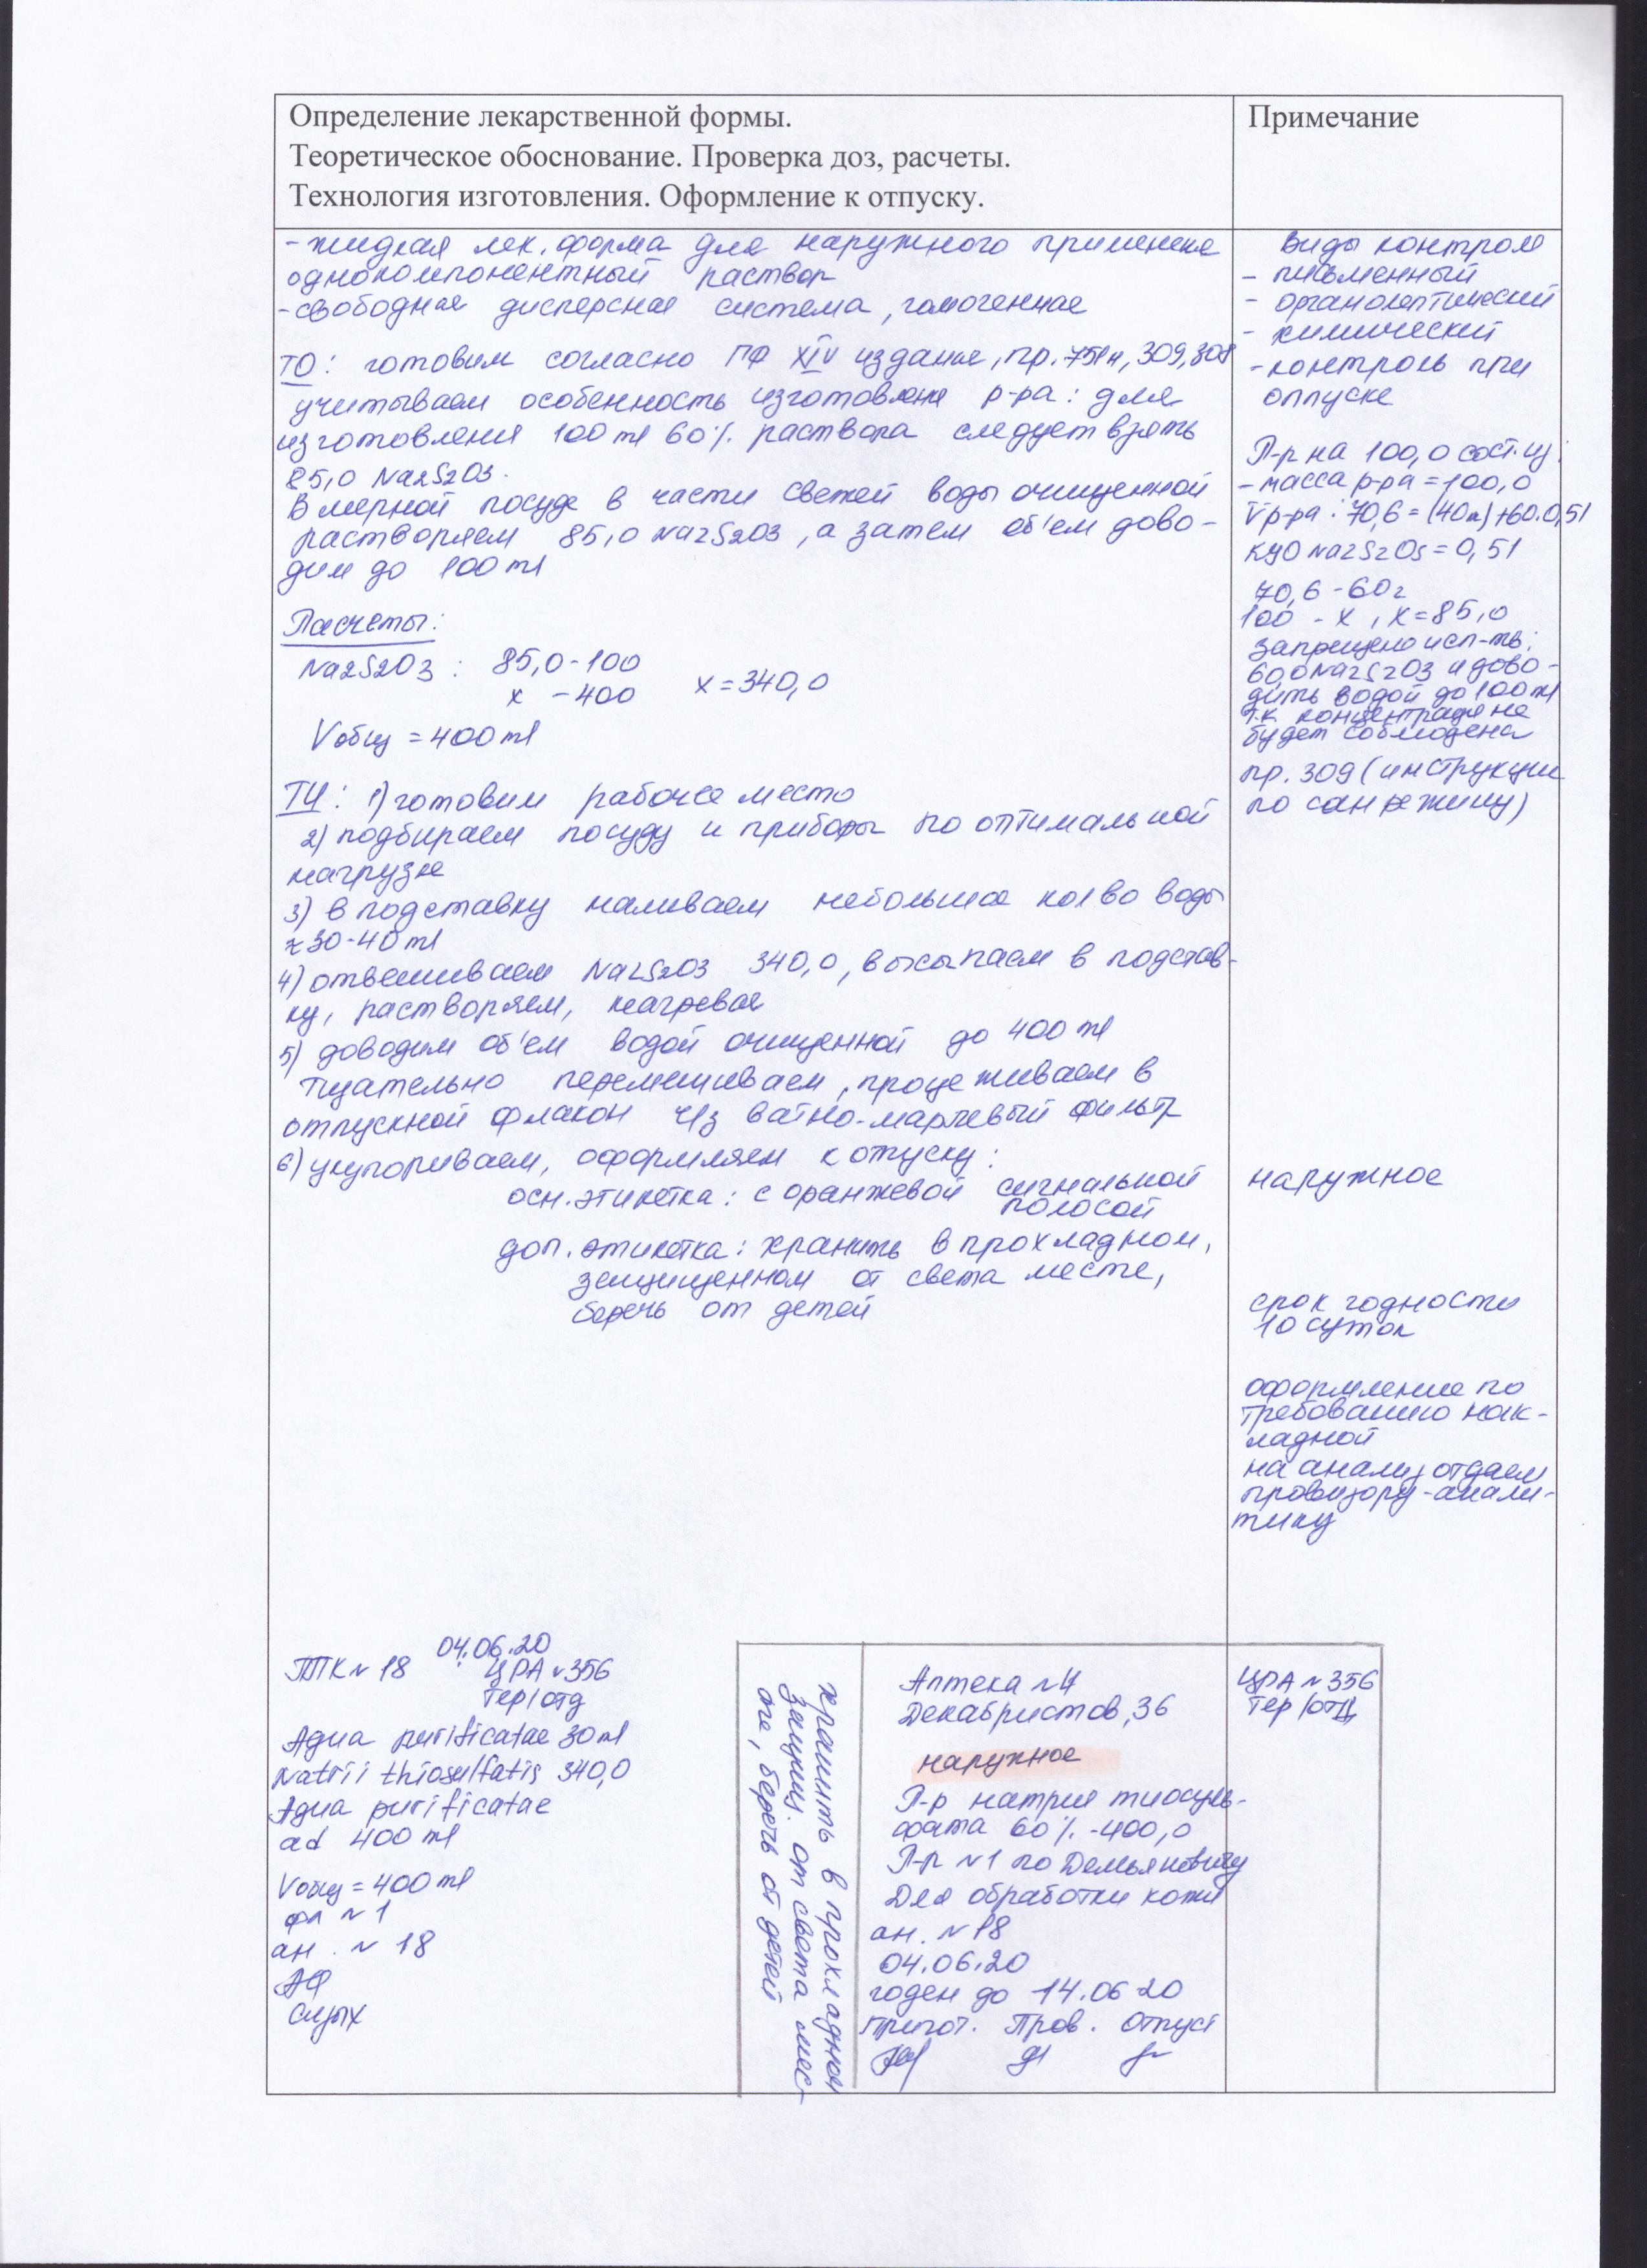 Определение лекарственной формы.
Теоретическое обоснование. Проверка доз, расчеты.
Технология изготовления. Оформление к отпуску.
Примечание
- жидкая лек. форма для наружного применения
однокомпонентный раствор
- свободная дисперсная система, гомогенная
ТО: готовим согласно ГФ XIV издание, пр. 751н, 309, 308
учитываем особенность изготовления р-ра: для
изготовления 100 ml 60% раствора следует взять
85,0 Na2S2O3.
В мерной посуде в части свежей воды очищенной
растворяем 85,0 Na2S2O3, а затем об'ем дово-
дим до 100 ml
Расчеты:
Na2S2O3: 85,0 - 100
x - 400 x = 340,0
Vобщ = 400 ml
ТИ: 1) готовим рабочее место
2) подбираем посуду и приборы по оптимальной
нагрузке
3) в подставку наливаем небольшое кол во воды
≈ 30-40 ml
4) отвешиваем Na2S2O3 340,0, высыпаем в подстав-
ку, растворяем, нагревая
5) доводим об'ем водой очищенной до 400 ml
тщательно перемешиваем, процеживаем в
отпускной флакон ч/з ватно-марлевый фильтр
6) укупориваем, оформляем к отпуску:
осн. этикетка: с оранжевой сигнальной
полосой
доп. этикетка: хранить в прохладном,
защищенном от света месте,
беречь от детей
Виды контроля
- письменный
- органолептический
- химический
- контроль при
отпуске
Р-р на 100,0 сост. из:
- масса р-ра = 100,0
V р-ра: 70,6 = (40 m) + 60. 0,51
КУО Na2S2O3 = 0,51
70,6 - 60 г
100 - x, x = 85,0
запрещено исп-ть:
60,0 Na2S2O3 и дово-
дить водой до 100 ml
т.к. концентрация не
будет соблюдена
пр. 309 (инструкция
по сан режиму)
наружное
срок годности
10 суток
оформление по
требованию нак-
ладной
на анализ отдаем
провизору-анали-
тику
04.06.20
ППК № 18 ЦРА № 356
Тер/отд
Aqua purificatae 30 ml
Natrii thiosulfatis 340,0
Aqua purificatae
ad 400 ml
Vобщ = 400 ml
фл № 1
ан. № 18
хранить в прохладном
защищ. от света мес-
те, беречь от детей
Аптека №4
Декабристов, 36
ЦРА № 356
Тер/отд
наружное
Р-р натрия тиосуль-
фата 60% - 400,0
Р-р №1 по Демьяновичу
Для обработки кожи
ан. № 18
04.06.20
годен до 14.06 20
Пригот. Пров. Отпуст